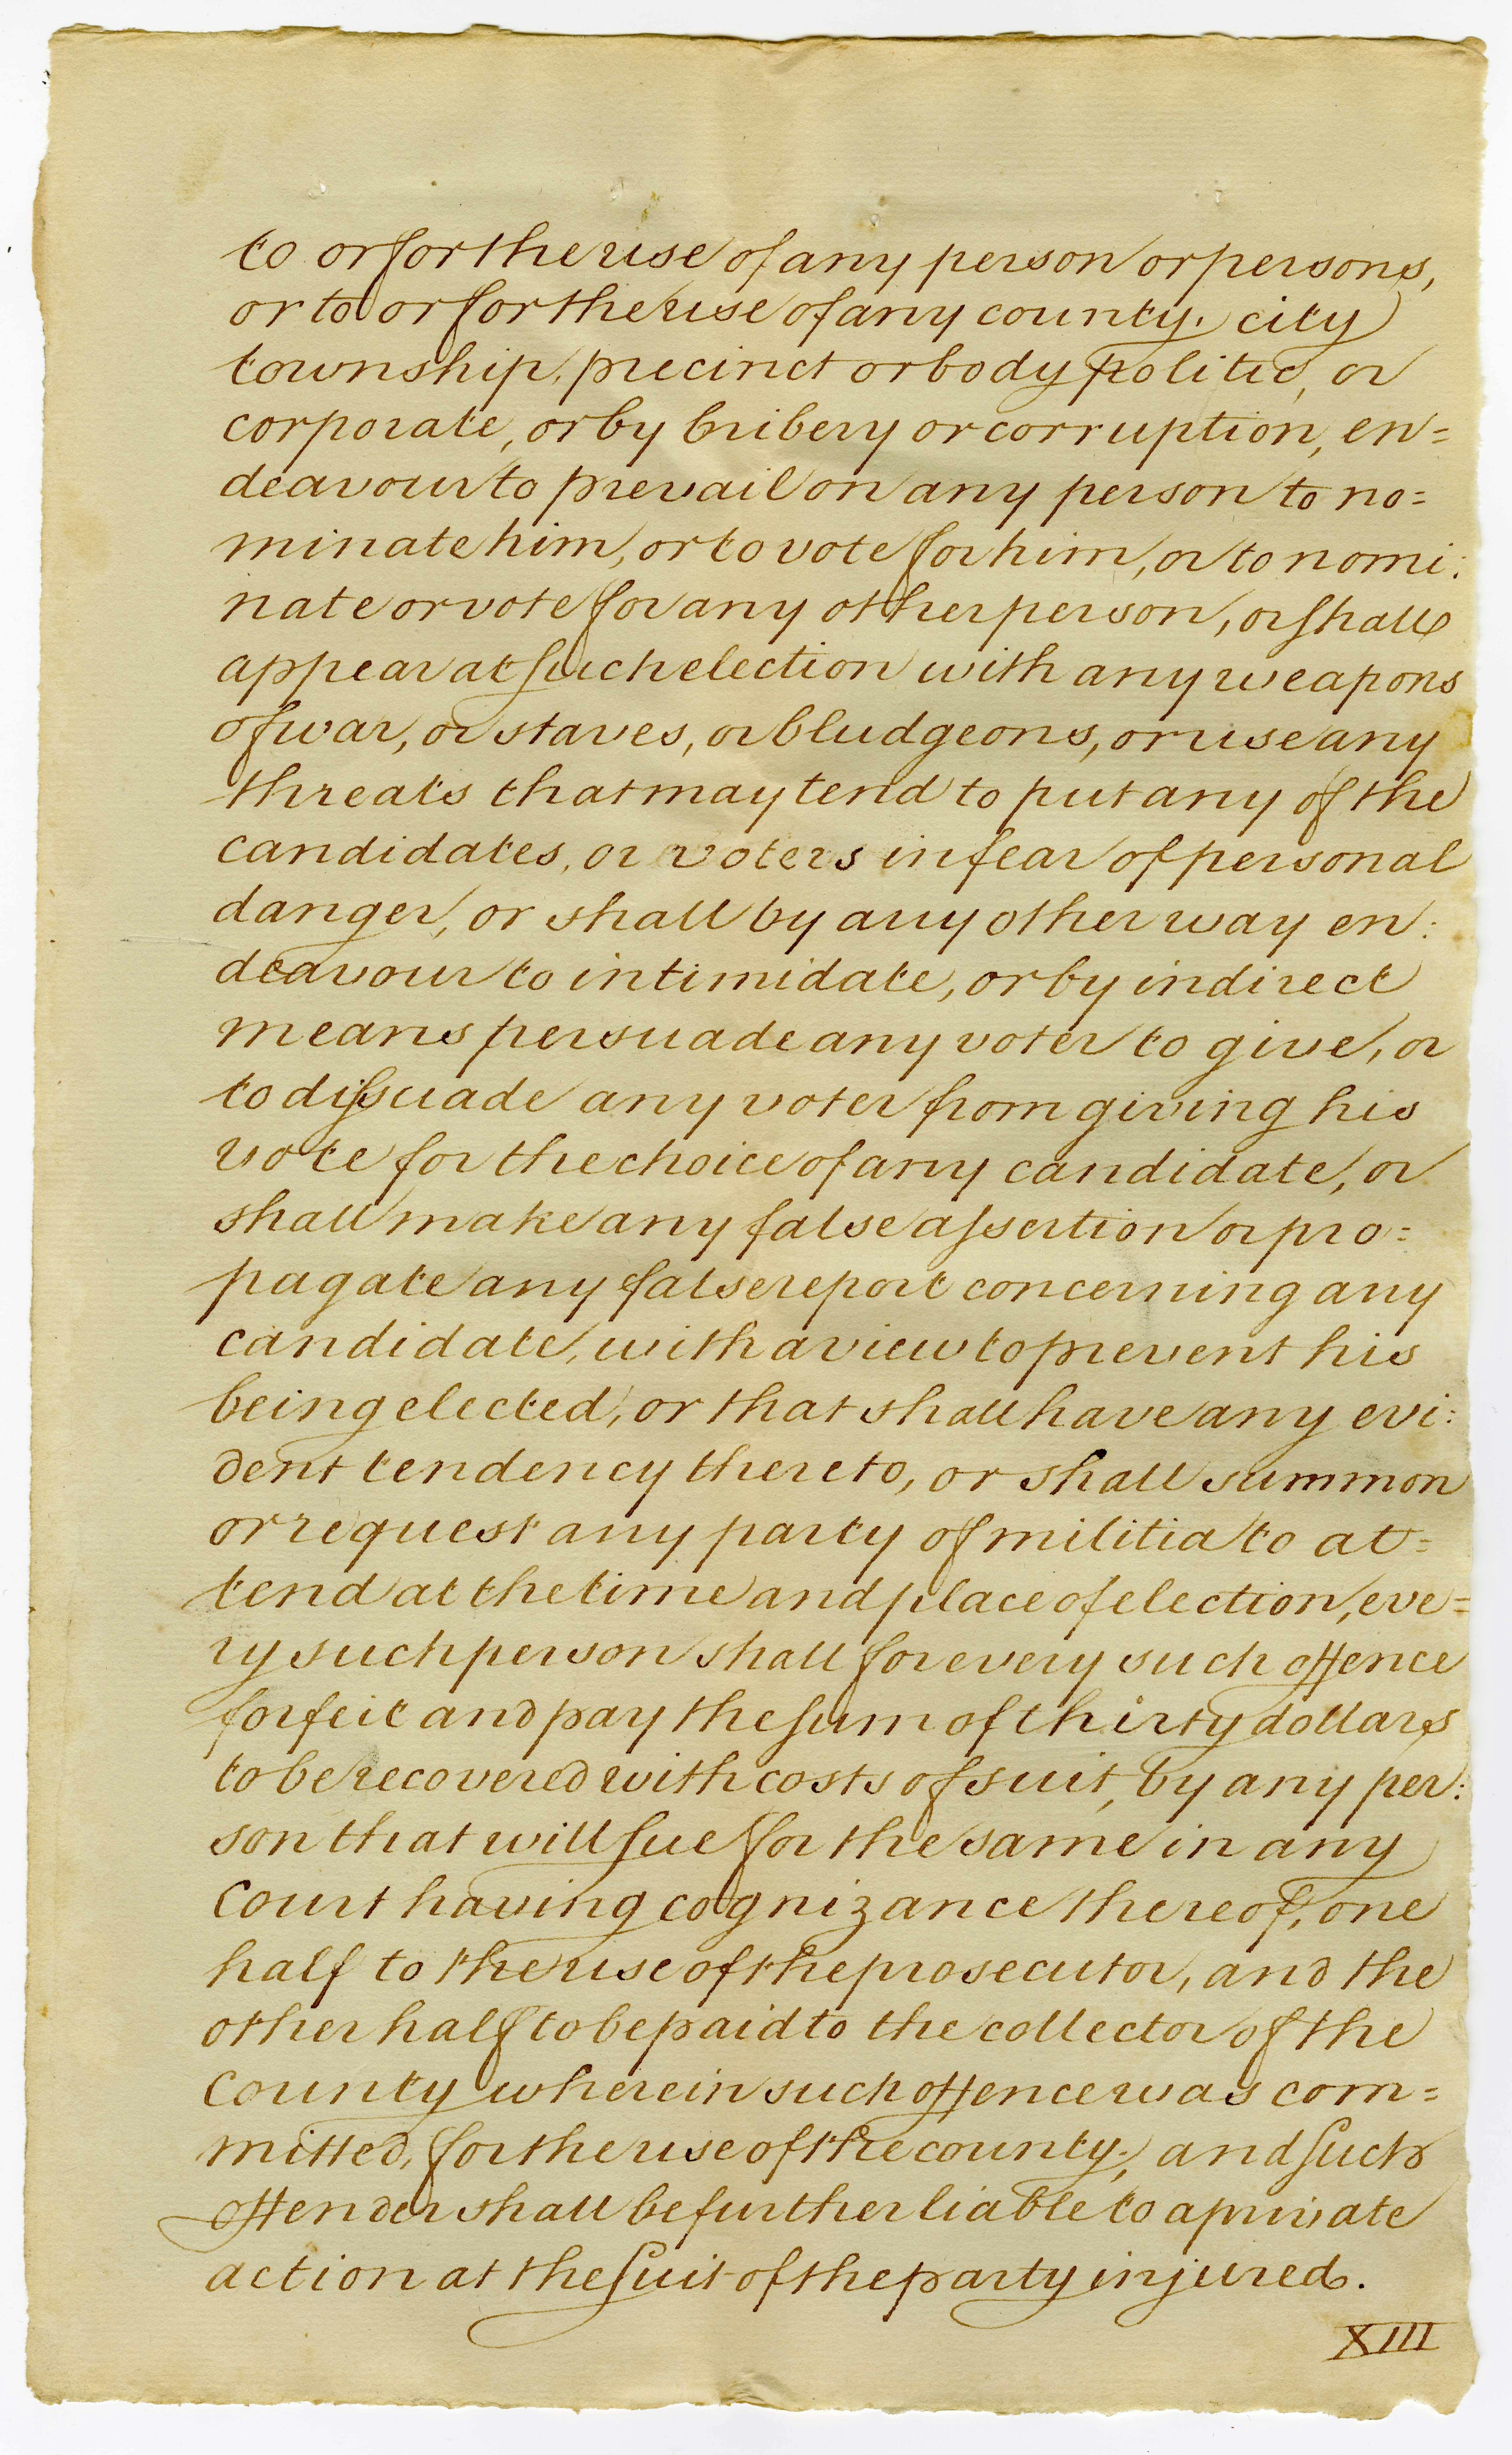 to or for the use of any person or persons,
or to or for the use of any county, city
township, precinct or body politic, or
corporate, or by bribery or corruption, en=
deavour to prevail on any person to no=
minate him, or to vote for him, or to nomi:
nate or vote for any other person, or shall
appear at such election with any weapons
of war, or staves, or bludgeons, or use any
threats that may tend to put any of the
candidates, or voters in fear of personal
danger, or shall by any other way en:
deavour to intimidate, or by indirect
means persuade any voter to give, or
to dissuade any voter from giving his
vote for the choice of any candidate, or
shall make any false assertion or pro=
pagate any false report concerning any
candidate, with a view to prevent his
being elected, or that shall have any evi:
dent tendency thereto, or shall summon
or request any party of militia to at=
tend at the time and place of election, eve=
ry such person shall for every such offence
forfeit and pay the sum of thirty dollars
to be recovered with costs of suit, by any per:
son that will sue for the same in any
Court having cognizance thereof, one
half to the use of the prosecutor, and the
other half to be paid to the collector of the
County wherein such offence was com=
mitted, for the use of the county; and such
offender shall be further liable to a private
action at the suit of the party injured.
XIII